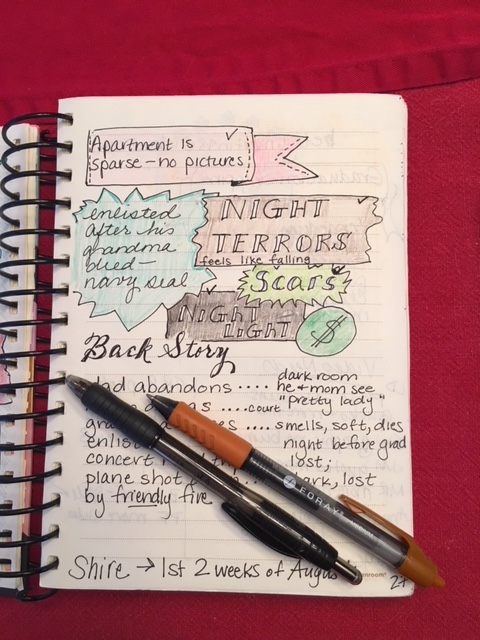 Apartment is
sparse - no pictures
enlisted
after his
grandma
died -
navy seal
NIGHT
TERRORS
feels like falling
Scars
NIGHT
LIGHT
$
Back Story
dad abandons .... dark room
he & mom see
"pretty lady"
.... court
smells, soft, dies
night before grad
concert
lost;
plane shot
dark, lost
by friendly fire
FORAY
Shire → 1st 2 weeks of